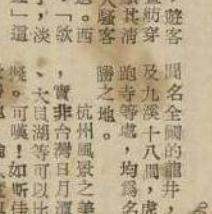 聞名全國的龍井，
及九溪十八間，虎
跑寺等處，均爲名
勝之地。
杭州風景之美
，實非台灣日月潭
、大貝湖等可以比
擬。可嘆！如斯佳
遊客
舫穿
其淸
騷客
。西
「歌
，淡
「這